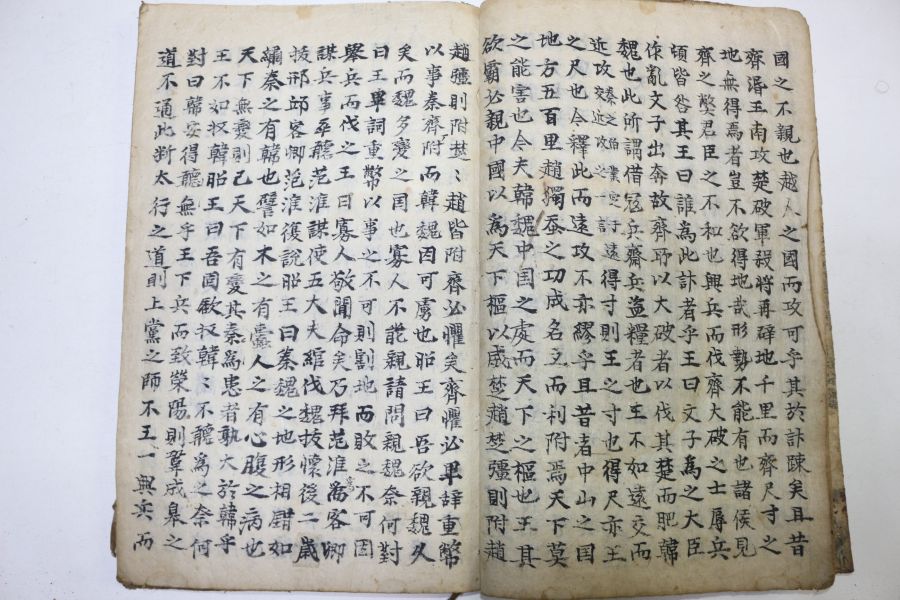 國之不親也越人之國而攻可乎其於計疎矣且昔
齊湣王南攻楚破軍殺將再辟地千里而齊尺寸之
地無得焉者豈不欲得地哉形勢不能有也諸侯見
齊之獘君臣之不和也興兵而伐齊大破之士辱兵
頓皆咎其王曰誰為此計者乎王曰文子為之大臣
作亂文子出奔故齊所以大破者以伐其楚而肥韓
魏也此所謂借寇兵齎盜糧者也王不如遠交而
近攻得寸則王之寸也得尺亦王
之尺也今釋此而遠攻不亦繆乎且昔者中山之国
地方五百里趙獨吞之功成名立而利附焉天下莫
之能害也今夫韓魏中国之處而天下之樞也王其
欲霸必親中國以為天下樞以威楚趙楚彊則附趙
趙彊則附楚〻趙皆附齊必懼矣齊懼必卑辞重幣
以事秦齊附而韓魏因可虜也昭王曰吾欲親魏久
矣而魏多變之国也寡人不能親請問親魏奈何對
曰王卑詞重幣以事之不可則割地而賂之不可因
舉兵而伐之王曰寡人敬聞命矣乃拜范淮為客卿
謀兵事卒聽范淮謀使五大夫綰伐魏拔懷後二歲
拔邢邱客卿范淮復說昭王曰秦魏之地形相錯如
繡秦之有韓也譬如木之有蠹人之有心腹之病也
天下無變則已天下有變其秦為患者孰大於韓乎
王不如収韓昭王曰吾固欲収韓〻不聽為之奈何
對曰韓安得聽無乎王下兵而致榮陽則鞏成皋之
道不通北断太行之道則上黨之師不王一興兵而